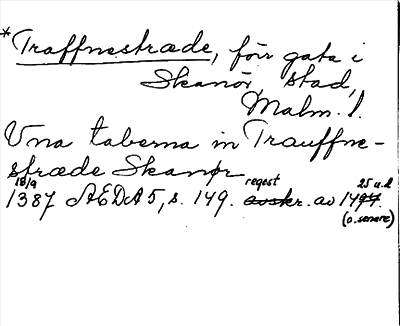 *Traffnestræde, förr gata i
Skanör, stad,
Malm. l.
Vna taberna in Trauffne-
stræde Skanør
18/9 regest 25 a. l
1387 AEDA 5, s. 149. avskr. av 1494.
(o. senare)